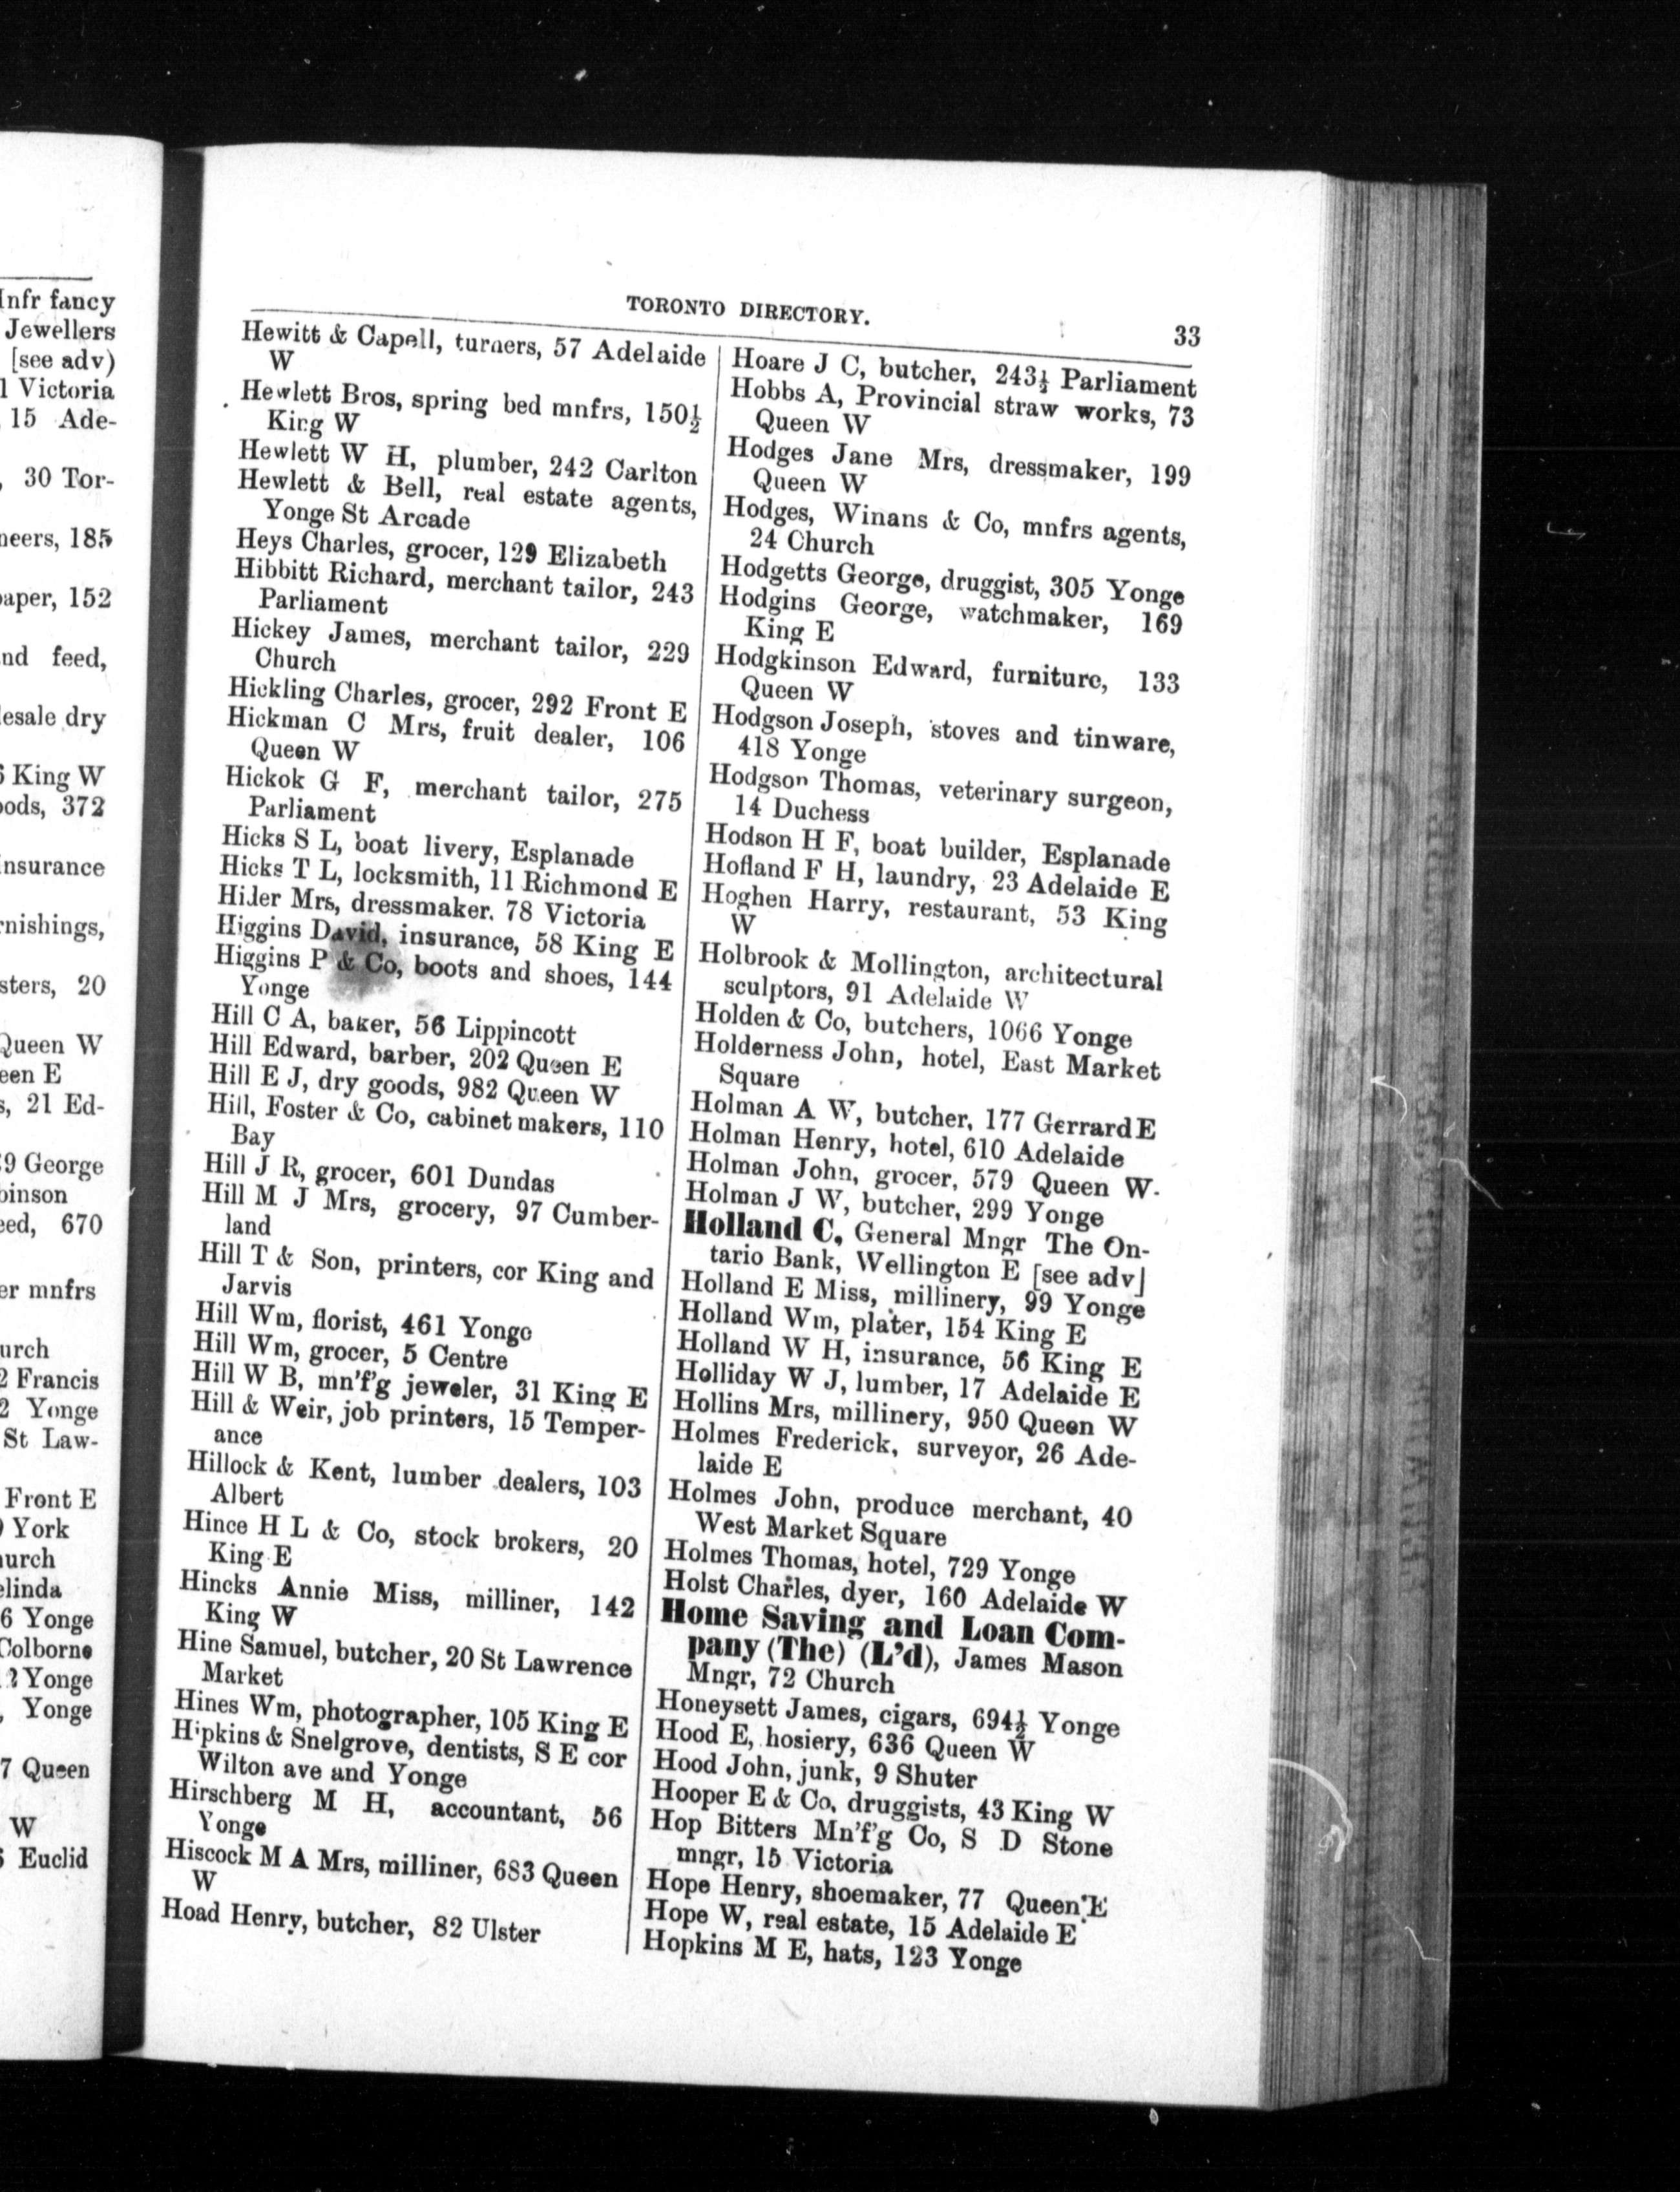 Infr fancy
Jewellers
[see adv)
1 Victoria
15 Ade-
, 30 Tor-
neers, 185
aper, 152
nd feed,
esale dry
King W
oods, 372
insurance
rnishings,
sters, 20
Queen W
een E
s, 21 Ed-
9 George
binson
eed, 670
er mnfrs
urch
2 Francis
2 Yonge
St Law-
Front E
York
urch
elinda
6 Yonge
Colborne
2 Yonge
, Yonge
7 Queen
W
Euclid
TORONTO DIRECTORY.
33
Hewitt & Capell, turners, 57 Adelaide
W
Hewlett Bros, spring bed mnfrs, 150½
King W
Hewlett W H, plumber, 242 Carlton
Hewlett & Bell, real estate agents,
Yonge St Arcade
Heys Charles, grocer, 129 Elizabeth
Hibbitt Richard, merchant tailor, 243
Parliament
Hickey James, merchant tailor, 229
Church
Hickling Charles, grocer, 292 Front E
Hickman C Mrs, fruit dealer, 106
Queen W
Hickok G F, merchant tailor, 275
Parliament
Hicks S L, boat livery, Esplanade
Hicks T L, locksmith, 11 Richmond E
Hider Mrs, dressmaker. 78 Victoria
Higgins David, insurance, 58 King E
Higgins P & Co, boots and shoes, 144
Yonge
Hill C A, baker, 56 Lippincott
Hill Edward, barber, 202 Queen E
Hill E J, dry goods, 982 Queen W
Hill, Foster & Co, cabinet makers, 110
Bay
Hill J R, grocer, 601 Dundas
Hill M J Mrs, grocery, 97 Cumber-
land
Hill T & Son, printers, cor King and
Jarvis
Hill Wm, florist, 461 Yonge
Hill Wm, grocer, 5 Centre
Hill W B, mn'f'g jeweler, 31 King E
Hill & Weir, job printers, 15 Temper-
ance
Hillock & Kent, lumber dealers, 103
Albert
Hince H L & Co, stock brokers, 20
King E
Hincks Annie Miss, milliner, 142
King W
Hine Samuel, butcher, 20 St Lawrence
Market
Hines Wm, photographer, 105 King E
Hipkins & Snelgrove, dentists, S E cor
Wilton ave and Yonge
Hirschberg M H, accountant, 56
Yonge
Hiscock M A Mrs, milliner, 683 Queen
W
Hoad Henry, butcher, 82 Ulster
Hoare J C, butcher, 243½ Parliament
Hobbs A, Provincial straw works, 73
Queen W
Hodges Jane Mrs, dressmaker, 199
Queen W
Hodges, Winans & Co, mnfrs agents,
24 Church
Hodgetts George, druggist, 305 Yonge
Hodgins George, watchmaker, 169
King E
Hodgkinson Edward, furniture, 133
Queen W
Hodgson Joseph, stoves and tinware,
418 Yonge
Hodgson Thomas, veterinary surgeon,
14 Duchess
Hodson H F, boat builder, Esplanade
Hofland F H, laundry, 23 Adelaide E
Hoghen Harry, restaurant, 53 King
W
Holbrook & Mollington, architectural
sculptors, 91 Adelaide W
Holden & Co, butchers, 1066 Yonge
Holderness John, hotel, East Market
Square
Holman A W, butcher, 177 Gerrard E
Holman Henry, hotel, 610 Adelaide
Holman John, grocer, 579 Queen W
Holman J W, butcher, 299 Yonge
Holland C, General Mngr The On-
tario Bank, Wellington E [see adv]
Holland E Miss, millinery, 99 Yonge
Holland Wm, plater, 154 King E
Holland W H, insurance, 56 King E
Holliday W J, lumber, 17 Adelaide E
Hollins Mrs, millinery, 950 Queen W
Holmes Frederick, surveyor, 26 Ade-
laide E
Holmes John, produce merchant, 40
West Market Square
Holmes Thomas, hotel, 729 Yonge
Holst Charles, dyer, 160 Adelaide W
Home Saving and Loan Com-
pany (The) (L'd), James Mason
Mngr, 72 Church
Honeysett James, cigars, 694½ Yonge
Hood E, hosiery, 636 Queen W
Hood John, junk, 9 Shuter
Hooper E & Co, druggists, 43 King W
Hop Bitters Mn'f'g Co, S D Stone
mngr, 15 Victoria
Hope Henry, shoemaker, 77 Queen E
Hope W, real estate, 15 Adelaide E
Hopkins M E, hats, 123 Yonge